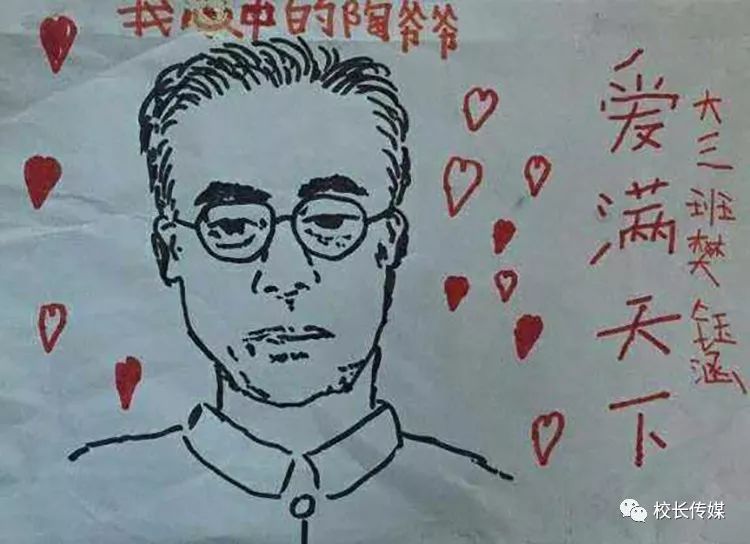 我心中的陶爷爷
爱满天下
大三班樊钰涵
校长传媒